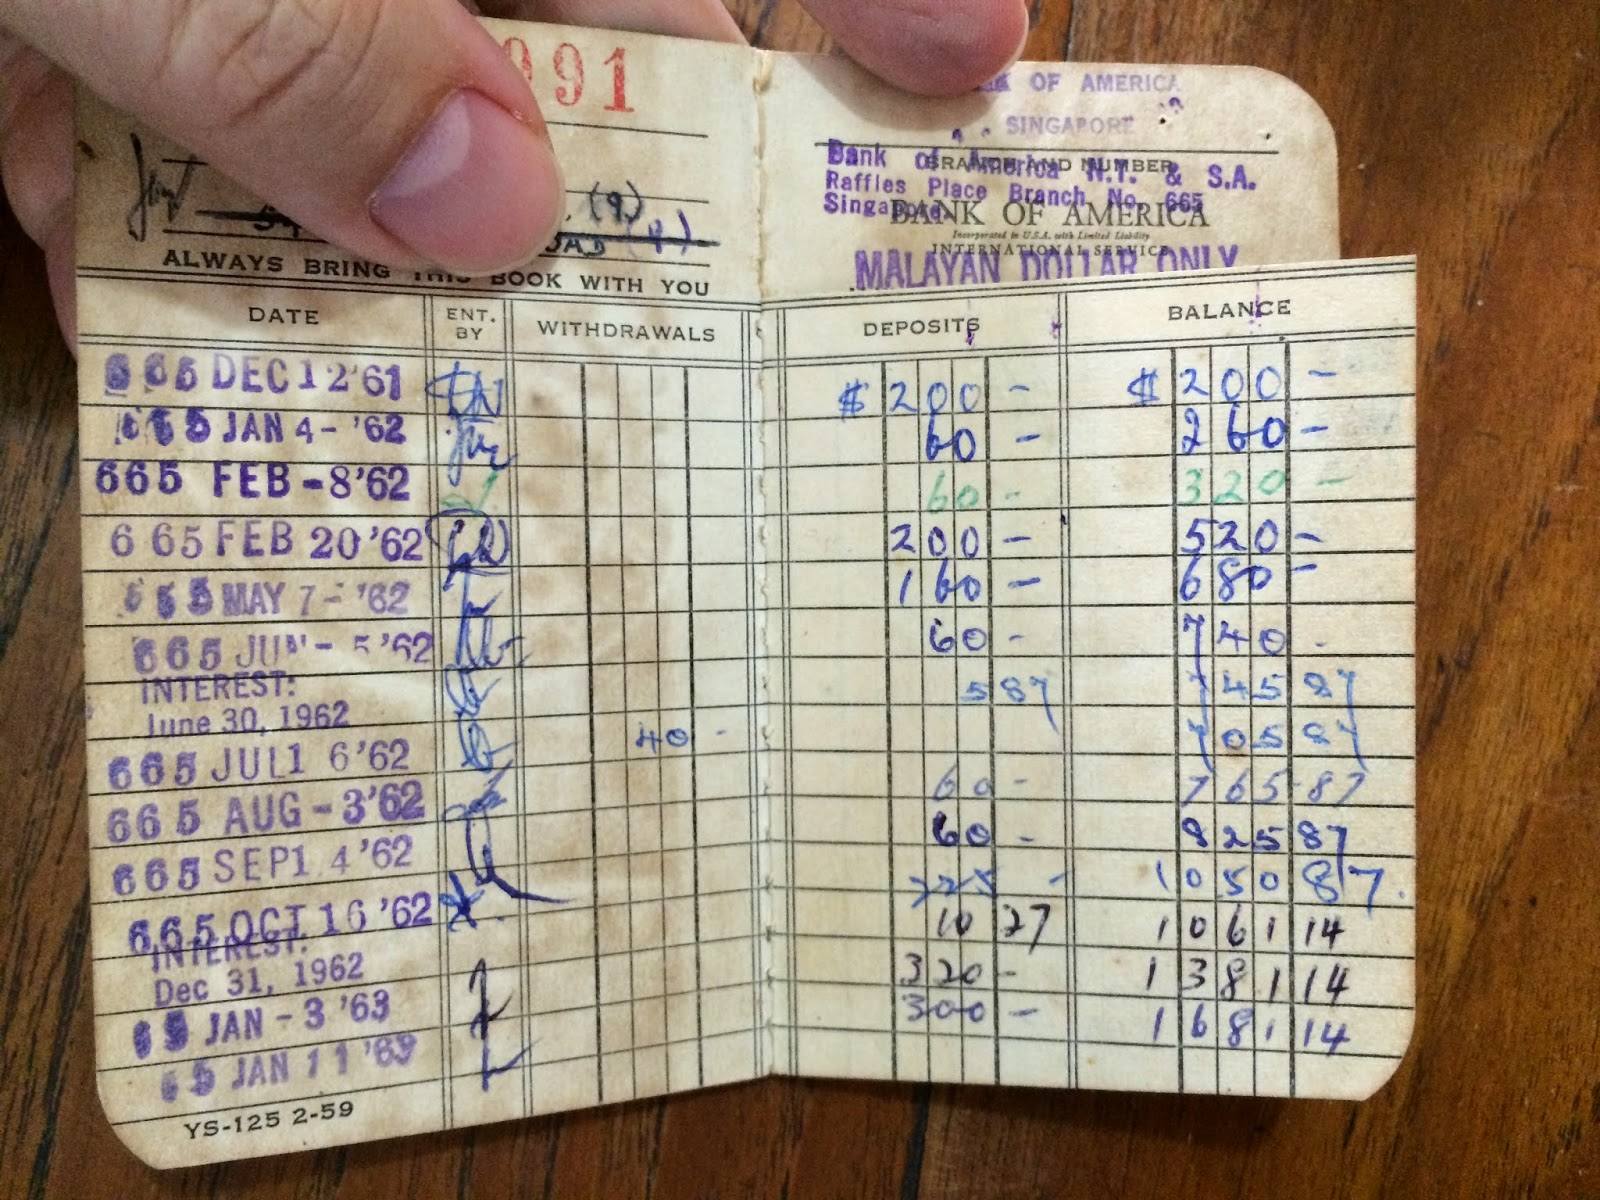 991
Joint
(9)
(9)
ALWAYS BRING THIS BOOK WITH YOU
OF AMERICA
SINGAPORE
BRANCH AND NUMBER
Bank of America N.T. & S.A.
Raffles Place Branch No. 665
Singapore
BANK OF AMERICA
Incorporated in U.S.A. with Limited Liability
INTERNATIONAL SERVICE
MALAYAN DOLLAR ONLY
DATE ENT. BY WITHDRAWALS DEPOSITS BALANCE
665 DEC 12 '61 $ 200 - $ 200 -
665 JAN 4- '62 60 - 260 -
665 FEB -8 '62 60 - 320 -
665 FEB 20 '62 200 - 520 -
665 MAY 7- '62 160 - 680 -
665 JUN - 5 '62 60 - 740 -
INTEREST:
June 30, 1962 5 87 745 87
665 JUL 1 6 '62 40 - 705 87
665 AUG -3 '62 60 - 765 87
665 SEP 1 4 '62 60 - 825 87
665 OCT 16 '62 225 - 1050 87
INTEREST:
Dec 31, 1962 10 27 1061 14
65 JAN -3 '63 320 - 1381 14
65 JAN 11 '63 300 - 1681 14
YS-125 2-59